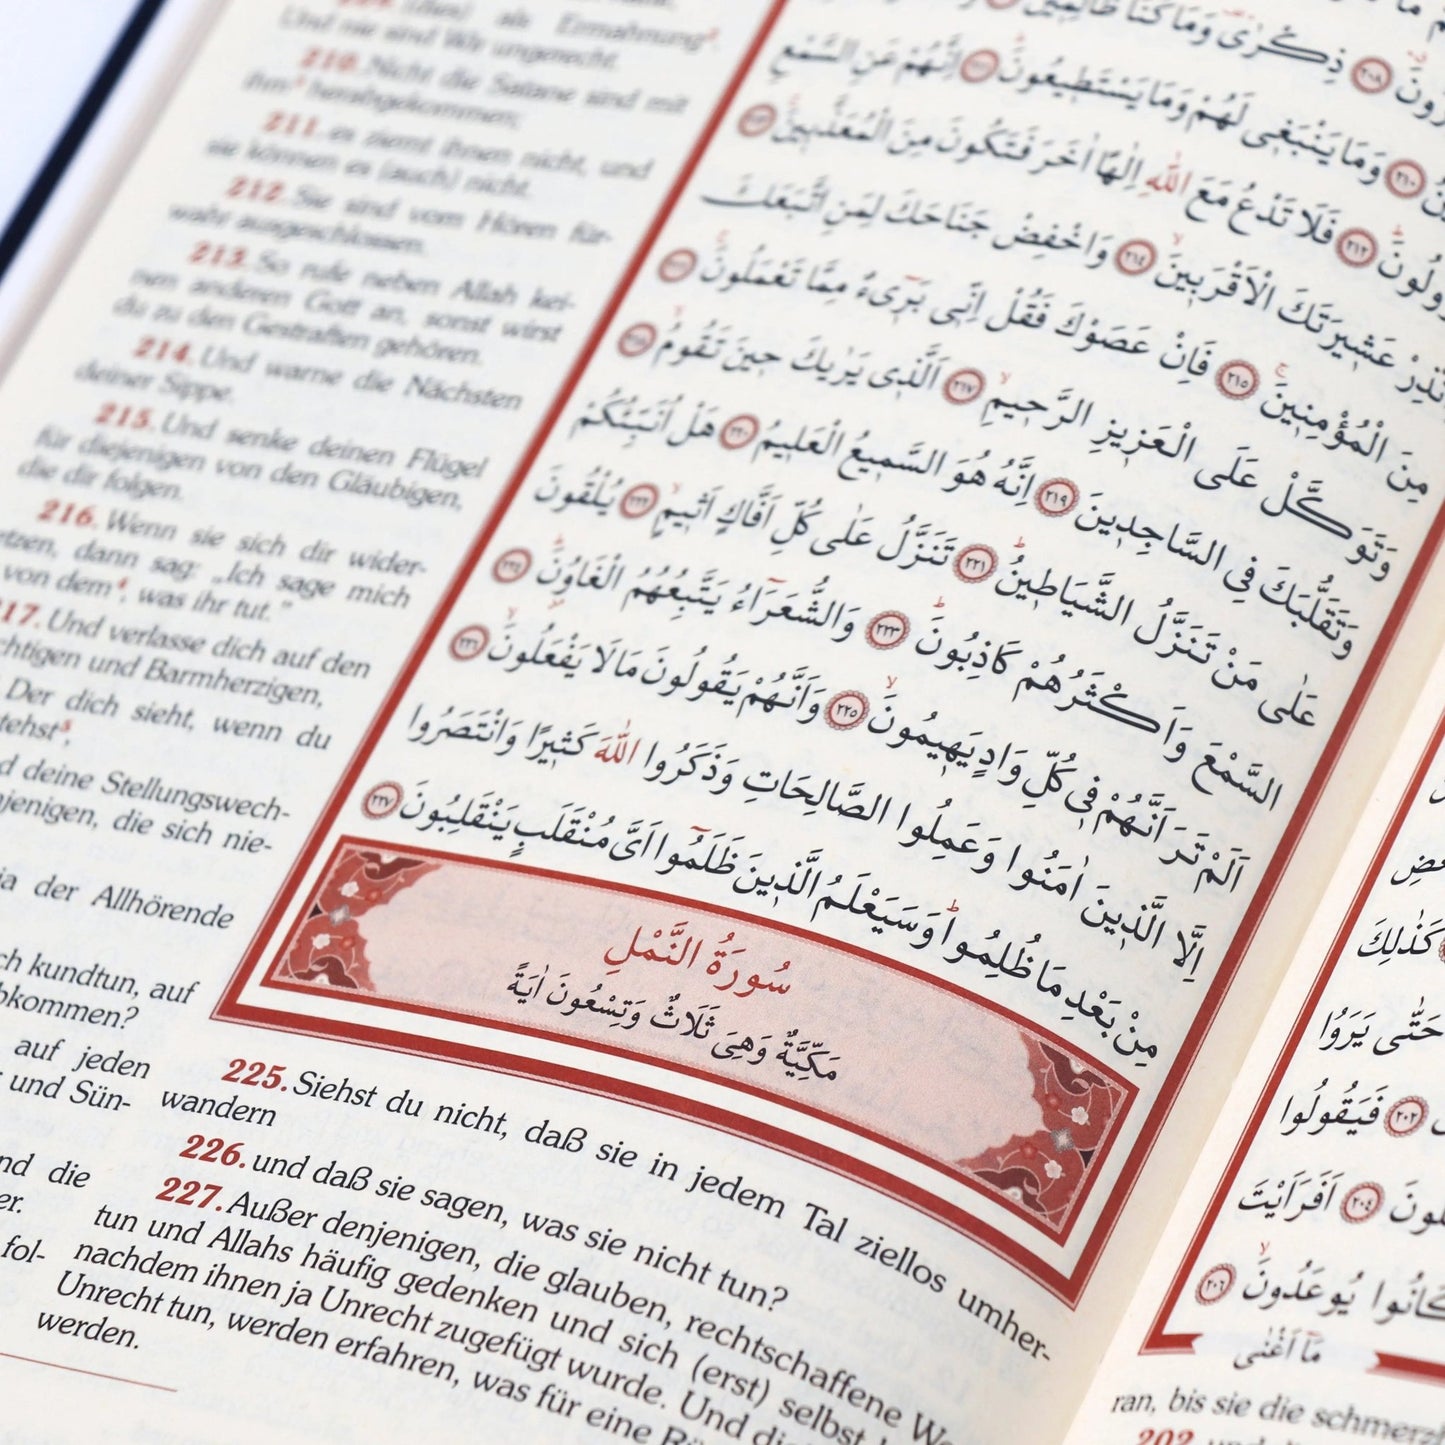 (dies) als Ermahnung².
Und nie sind Wir ungerecht.
210. Nicht die Satane sind mit
ihm³ herabgekommen;
211. es ziemt ihnen nicht, und
sie können es (auch) nicht.
212. Sie sind vom Hören für-
wahr ausgeschlossen.
213. So rufe neben Allah kei-
nen anderen Gott an, sonst wirst
du zu den Gestraften gehören.
214. Und warne die Nächsten
deiner Sippe.
215. Und senke deinen Flügel
für diejenigen von den Gläubigen,
die dir folgen.
216. Wenn sie sich dir wider-
etzen, dann sag: „Ich sage mich
von dem⁴, was ihr tut."
217. Und verlasse dich auf den
chtigen und Barmherzigen,
Der dich sieht, wenn du
tehst⁵,
d deine Stellungswech-
njenigen, die sich nie-
ja der Allhörende
ch kundtun, auf
bkommen?
auf jeden
und Sün-
nd die
er.
fol-
ذِكْرٰى وَمَا كُنَّا ظَالِمٖينَ
رُونَ ﴿٢٠٨﴾
﴿٢١٠﴾ وَمَا يَنْبَغٖى لَهُمْ وَمَا يَسْتَطٖيعُونَ ﴿٢١١﴾ اِنَّهُمْ عَنِ السَّمْعِ
﴿٢١٢﴾ فَلَا تَدْعُ مَعَ اللّٰهِ اِلٰهًا اٰخَرَ فَتَكُونَ مِنَ الْمُعَذَّبٖينَ ﴿٢١٣﴾
نْذِرْ عَشٖيرَتَكَ الْاَقْرَبٖينَ ﴿٢١٤﴾ وَاخْفِضْ جَنَاحَكَ لِمَنِ اتَّبَعَكَ
مِنَ الْمُؤْمِنٖينَ ﴿٢١٥﴾ فَاِنْ عَصَوْكَ فَقُلْ اِنّٖى بَرٖٓىءٌ مِمَّا تَعْمَلُونَ ﴿٢١٦﴾
وَتَوَكَّلْ عَلَى الْعَزٖيزِ الرَّحٖيمِ ﴿٢١٧﴾ اَلَّذٖى يَرٰيكَ حٖينَ تَقُومُ ﴿٢١٨﴾
وَتَقَلُّبَكَ فِى السَّاجِدٖينَ ﴿٢١٩﴾ اِنَّهُ هُوَ السَّمٖيعُ الْعَلٖيمُ ﴿٢٢٠﴾ هَلْ اُنَبِّئُكُمْ
عَلٰى مَنْ تَنَزَّلُ الشَّيَاطٖينُ ﴿٢٢١﴾ تَنَزَّلُ عَلٰى كُلِّ اَفَّاكٍ اَثٖيمٍ ﴿٢٢٢﴾ يُلْقُونَ
السَّمْعَ وَاَكْثَرُهُمْ كَاذِبُونَ ﴿٢٢٣﴾ وَالشُّعَرَٓاءُ يَتَّبِعُهُمُ الْغَاوُنَ ﴿٢٢٤﴾
اَلَمْ تَرَ اَنَّهُمْ فٖى كُلِّ وَادٍ يَهٖيمُونَ ﴿٢٢٥﴾ وَاَنَّهُمْ يَقُولُونَ مَا لَا يَفْعَلُونَ ﴿٢٢٦﴾
اِلَّا الَّذٖينَ اٰمَنُوا وَعَمِلُوا الصَّالِحَاتِ وَذَكَرُوا اللّٰهَ كَثٖيرًا وَانْتَصَرُوا
مِنْ بَعْدِ مَا ظُلِمُوا وَسَيَعْلَمُ الَّذٖينَ ظَلَمُٓوا اَىَّ مُنْقَلَبٍ يَنْقَلِبُونَ ﴿٢٢٧﴾
سُورَةُ النَّمْلِ
مَكِّيَّةٌ وَهِىَ ثَلَاثٌ وَتِسْعُونَ اٰيَةً
225. Siehst du nicht, daß sie in jedem Tal ziellos umher-
wandern
226. und daß sie sagen, was sie nicht tun?
227. Außer denjenigen, die glauben, rechtschaffene We
tun und Allahs häufig gedenken und sich (erst) selbst
nachdem ihnen ja Unrecht zugefügt wurde. Und die
Unrecht tun, werden erfahren, was für eine Rü
werden.
كَذٰلِكَ
حَتّٰى يَرَوُا
﴿٢٠٢﴾ فَيَقُولُوا
﴿٢٠٤﴾ اَفَرَاَيْتَ
كَانُوا يُوعَدُونَ ﴿٢٠٦﴾
مَٓا اَغْنٰى
ran, bis sie die schmerzl
202